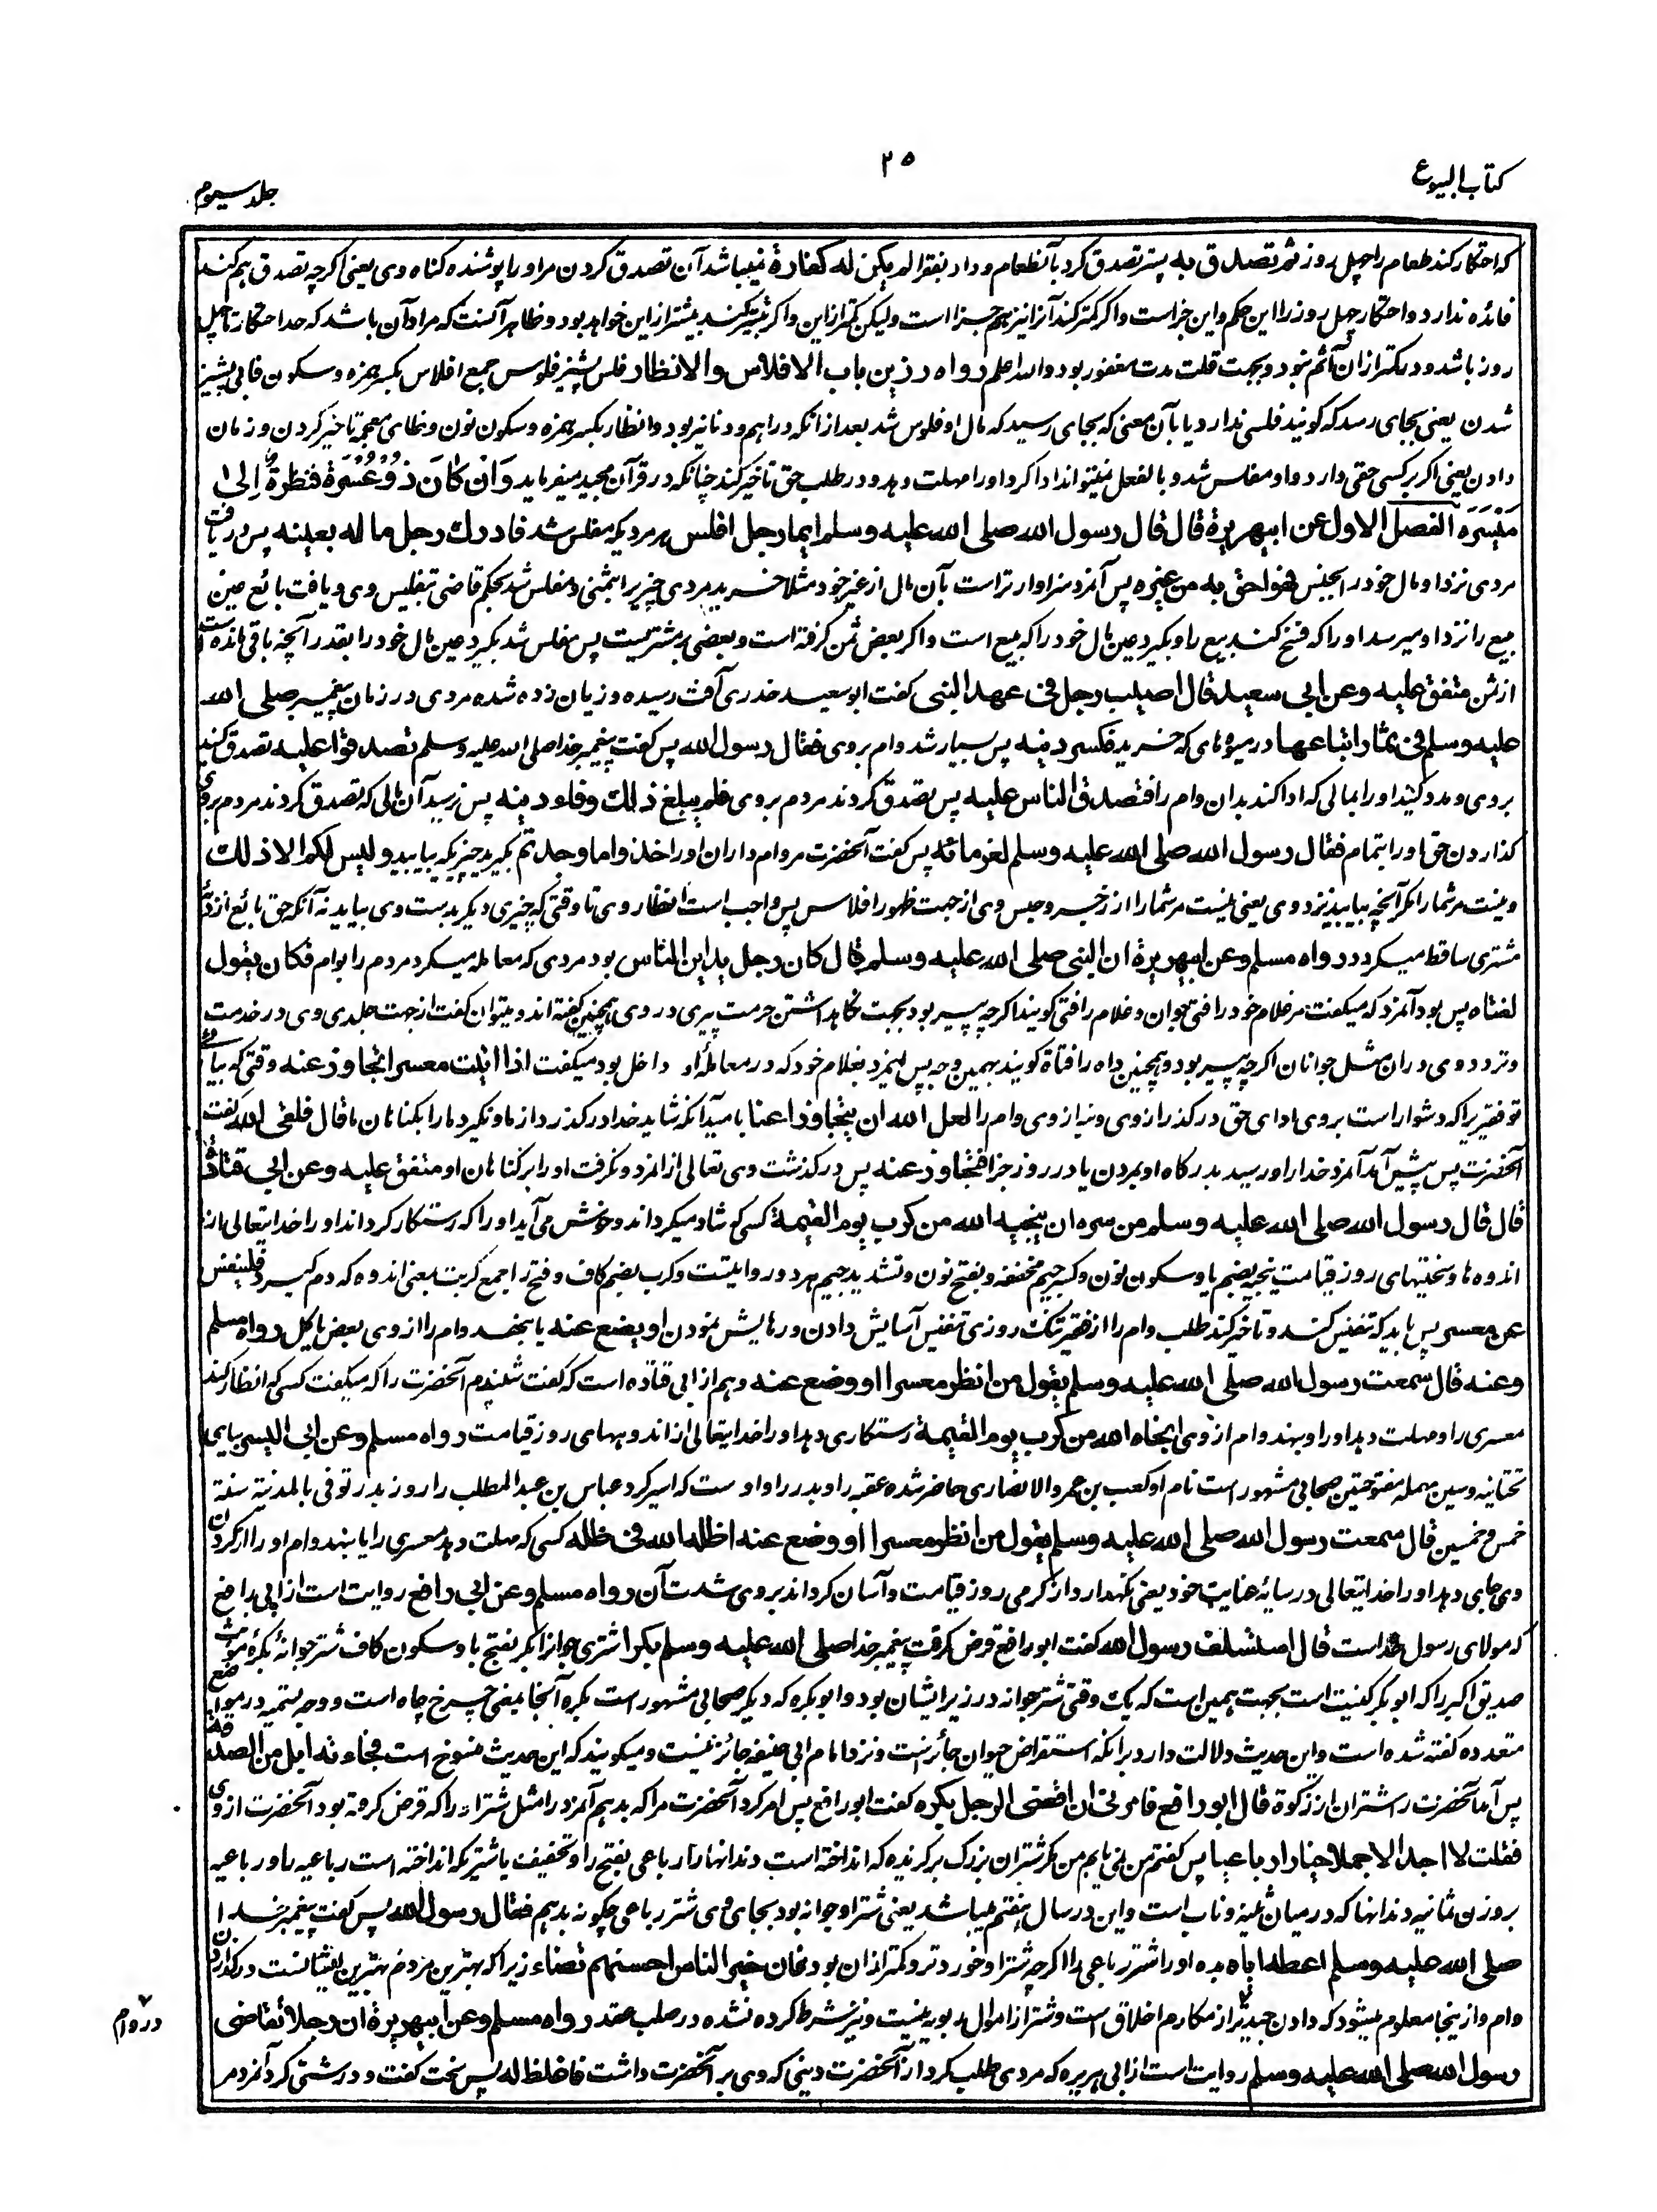 کتاب البیوع
۲۵
جلد سیوم
که احتکار کند طعام را چهل روز ثم تصدق به پستر تصدق کرد بآنطعام و داد بفقرا لم یکن له کفارة نمیباشد آن تصدق کردن مر او را پوشنده گناه وی یعنی اگرچه تصدق هم کند
فائده ندارد و احتکار چهل روز را این حکم و این جزاست و اگر کمتر کند آنرا نیز هم جزا است ولیکن کمتر از این و اگر بیشتر کند بیشتر از این خواهد بود و ظاهر آنست که مراد آن باشد که حد احتکار تا چهل
روز باشد و در کمتر از ان آثم نبود و بجهت قلت مدت مغفور بود والله اعلم رواه رزین باب الافلاس والانظار فلس پشیز فلوس جمع افلاس بکسر همزه و سکون فا بی پشیز
شدن یعنی بجای رسد که گویند فلسی ندارد یا بآن معنی که بجای رسید که مال او فلوس شد بعد از انکه دراهم و دنانیر بود و انظار بکسر همزه و سکون نون و ظای معجمه تاخیر کردن و زمان
دادن یعنی اگر بر کسی حقی دارد و او مفلس شد و بالفعل نمیتواند ادا کرد او را مهلت دهد و در طلب حق تاخیر کند چنانکه در قرآن مجید میفرماید وَاِنْ کَانَ ذُوْ عُسْرَةٍ فَنَظِرَةٌ اِلٰی
مَیْسَرَةٍ الفصل الاول عن ابیهریرة قال قال رسول الله صلی الله علیه وسلم ایما رجل افلس هر مردیکه مفلس شد فادرک رجل ماله بعینه پس دریافت
مردی نزد او مال خود را بجنس فهو احق به من غیره پس آنمرد سزاوارتر است بآن مال از غیر خود مثلا خرید مردی چیزیرا بثمنی و مفلس شد بحکم قاضی بتفلیس وی و یافت بائع عین
مبیع را نزد او میرسد او را که فسخ کند بیع را و بگیرد عین مال خود را که مبیع است و اگر بعض ثمن گرفته است و بعضی بر مشتریست پس مفلس شد بگیرد عین مال خود را بقدر آنچه باقی مانده است
از ثمن متفق علیه وعن ابی سعید قال اصیب رجل فی عهد النبی گفت ابو سعید خدری آفت رسیده و زیان زده شده مردی در زمان پیغمبر صلی الله
علیه وسلم فی ثمار ابتاعها در میوه‌های که خرید فکسر دینه پس بسیار شد وام بروی فقال رسول الله پس گفت پیغمبر خدا صلی الله علیه وسلم تصدقوا علیه تصدق کنید
بروی و مدد کنید او را بمالی که ادا کند بدان وام را فتصدق الناس علیه پس تصدق کردند مردم بروی فلم یبلغ ذلک وفاء دینه پس نرسید آن مالی که تصدق کردند مردم بروی
گذاردن حق او را بتمام فقال رسول الله صلی الله علیه وسلم لغرمائه پس گفت آنحضرت مر وام داران او را خذوا ما وجدتم بگیرید چیزیکه بیابید ولیس لکم الا ذلک
و نیست مر شما را مگر آنچه بیابید نزد وی یعنی نیست مر شما را از زجر و حبس وی از جهت ظهور افلاس پس واجب است انظار وی تا وقتی که چیزی دیگر بدست وی بیاید نه آنکه حق بائع از ذمه
مشتری ساقط میگردد رواه مسلم وعن ابیهریرة ان النبی صلی الله علیه وسلم قال کان رجل یداین الناس بود مردی که معامله میکرد مردم را بوام فکان یقول
لفتاه پس بود آنمرد که میگفت مر غلام خود را فتی جوان و غلام را فتی گویند اگرچه پیر بود بجهت نگاهداشتن حرمت پیری در وی همچنین گفته‌اند و میتوان گفت از جهت جلدی وی در خدمت
و تردد وی دران مثل جوانان اگرچه پیر بود و همچنین داه را فتاة گویند بهمین وجه پس آنمرد بغلام خود که در معامله او داخل بود میگفت اذا اتیت معسرا تجاوز عنه وقتی که بیائی
تو فقیریرا که دشوار است بروی ادای حق درگذر از وی و بنیاز وی وام را لعل الله ان یتجاوز عنا بامید آنکه شاید خدا درگذرد از ما و نگیرد ما را بگناهان ما قال فلقی الله گفت
آنحضرت پس پیش آمد آنمرد خدا را و رسید بدرگاه او بمردن یا در روز جزا فتجاوز عنه پس درگذشت وی تعالی از انمرد و نگرفت او را بر گناهان او متفق علیه وعن ابی قتادة
قال قال رسول الله صلی الله علیه وسلم من سره ان ینجیه الله من کرب یوم القیمة کسی که شاد میگرداند و خوش می‌آید او را که رستگار گرداند او را خدایتعالی از
اندوه‌ها و سختیهای روز قیامت ینجیه بضم یا و سکون نون و کسر جیم مخففه و بفتح نون و تشدید جیم هر دو روایتست و کرب بضم کاف و فتح را جمع کربت بمعنی اندوه که دم گیرد فلینفس
عن معسر پس باید که تنفیس کند و تاخیر کند طلب وام را از فقیر تنگ روزی تنفیس آسایش دادن و رهایش نمودن او یضع عنه یا بنهد وام را از وی بعض یا کل رواه مسلم
وعنه قال سمعت رسول الله صلی الله علیه وسلم یقول من انظر معسرا او وضع عنه و هم از ابی قتاده است که گفت شنیدم آنحضرت را که میگفت کسی که انظار کند
معسری را و مهلت دهد او را و بنهد وام از وی انجاه الله من کرب یوم القیمة رستگاری دهد او را خدایتعالی از اندوههای روز قیامت رواه مسلم وعن ابی الیسر بیای
تحتانیه و سین مهمله مفتوحتین صحابی مشهور است نام او کعب بن عمرو الانصاری حاضر شده عقبه را و بدر را و اوست که اسیر کرد عباس بن عبد المطلب را روز بدر توفی بالمدینة سنة
خمس و خمسین قال سمعت رسول الله صلی الله علیه وسلم یقول من انظر معسرا او وضع عنه اظله الله فی ظله کسی که مهلت دهد معسری را یا بنهد وام او را از گردن
وی جای دهد او را خدایتعالی در سایه عنایت خود یعنی نگهدارد از گرمی روز قیامت و آسان گرداند بروی شدت آن رواه مسلم وعن ابی رافع روایت است از ابی رافع
که مولای رسول خداست قال استسلف رسول الله گفت ابو رافع قرض گرفت پیغمبر خدا صلی الله علیه وسلم بکرا شتری جوانرا بکر بفتح با و سکون کاف شتر جوانه بکرة مونث
صدیق اکبر را که ابوبکر کنیت است بجهت همین است که یک وقتی شتر جوانه در زیر ایشان بود و ابوبکره که دیگر صحابی مشهور است بکره آنجا بمعنی چرخ چاه است و وجه تسمیه در مواضع
متعدده گفته شده است و این حدیث دلالت دارد برانکه استقراض حیوان جائز است و نزد امام ابی حنیفه جائز نیست و میگویند که این حدیث منسوخ است فجاءته ابل من الصدقة
پس آمد آنحضرت را شتران از زکوة قال ابو رافع فامرنی ان اقضی الرجل بکره گفت ابو رافع پس امر کرد آنحضرت مرا که بدهم آنمرد را مثل شتر او را که قرض کرده بود آنحضرت از وی
فقلت لا اجد الا جملا خیارا رباعیا پس گفتم من نمی یابم من مگر شتران بزرگ برگزیده که انداخته است دندانها را رباعی بفتح را و تخفیف یا شتریکه انداخته است رباعیه را و رباعیه
بروزن ثمانیه دندانها که درمیان ثنیه و ناب است و این در سال هفتم میباشد یعنی شتر او جوانه بود بجای وی شتر رباعی چگونه بدهم فقال رسول الله پس گفت پیغمبر خدا
صلی الله علیه وسلم اعطه ایاه بده او را شتر رباعی را اگرچه شتر او خوردتر و کمتر ازان بود فان خیر الناس احسنهم قضاء زیرا که بهترین مردم بهترین ایشانست در گذاردن
وام و ازینجا معلوم میشود که دادن جید تر از مکارم اخلاق است و شتر از اموال ربویه نیست و نیز شرط کرده نشده در صلب عقد رواه مسلم وعن ابیهریرة ان رجلا تقاضی
رسول الله صلی الله علیه وسلم روایت است از ابی هریره که مردی طلب کرد از آنحضرت دینی که وی بر آنحضرت داشت فاغلظ له پس سخت گفت و درشتی کرد آنمرد مر
در وام